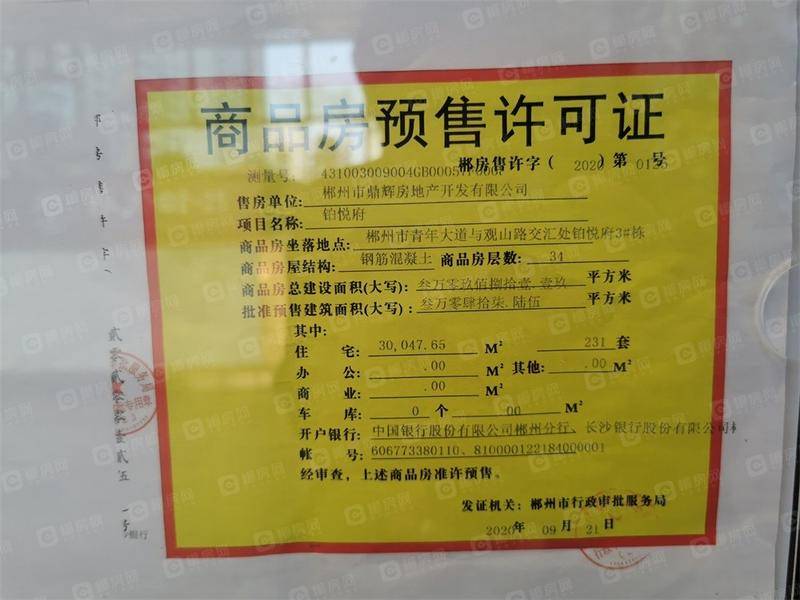 商品房预售许可证
郴房售许字（ 2020 ）第 0125 号
测量号： 431003009004GB00057
售房单位: 郴州市鼎辉房地产开发有限公司
项目名称: 铂悦府
商品房坐落地点: 郴州市青年大道与观山路交汇处铂悦府3#栋
商品房屋结构: 钢筋混凝土 商品房层数: 34
商品房总建设面积(大写): 叁万零玖佰捌拾壹.壹玖 平方米
批准预售建筑面积(大写): 叁万零肆拾柒.陆伍 平方米
其中:
住 宅: 30,047.65 M² 231 套
办 公: .00 M² 其他: .00 M²
商 业: .00 M²
车 库: 0 个 00 M²
开户银行: 中国银行股份有限公司郴州分行、长沙银行股份有限公司
帐 号: 606773380110、810000122184000001
经审查，上述商品房准许预售。
发证机关: 郴州市行政审批服务局
2020年 09 月 21 日
房售许字（
贰零贰零零壹贰五 一号
银行
郴房网